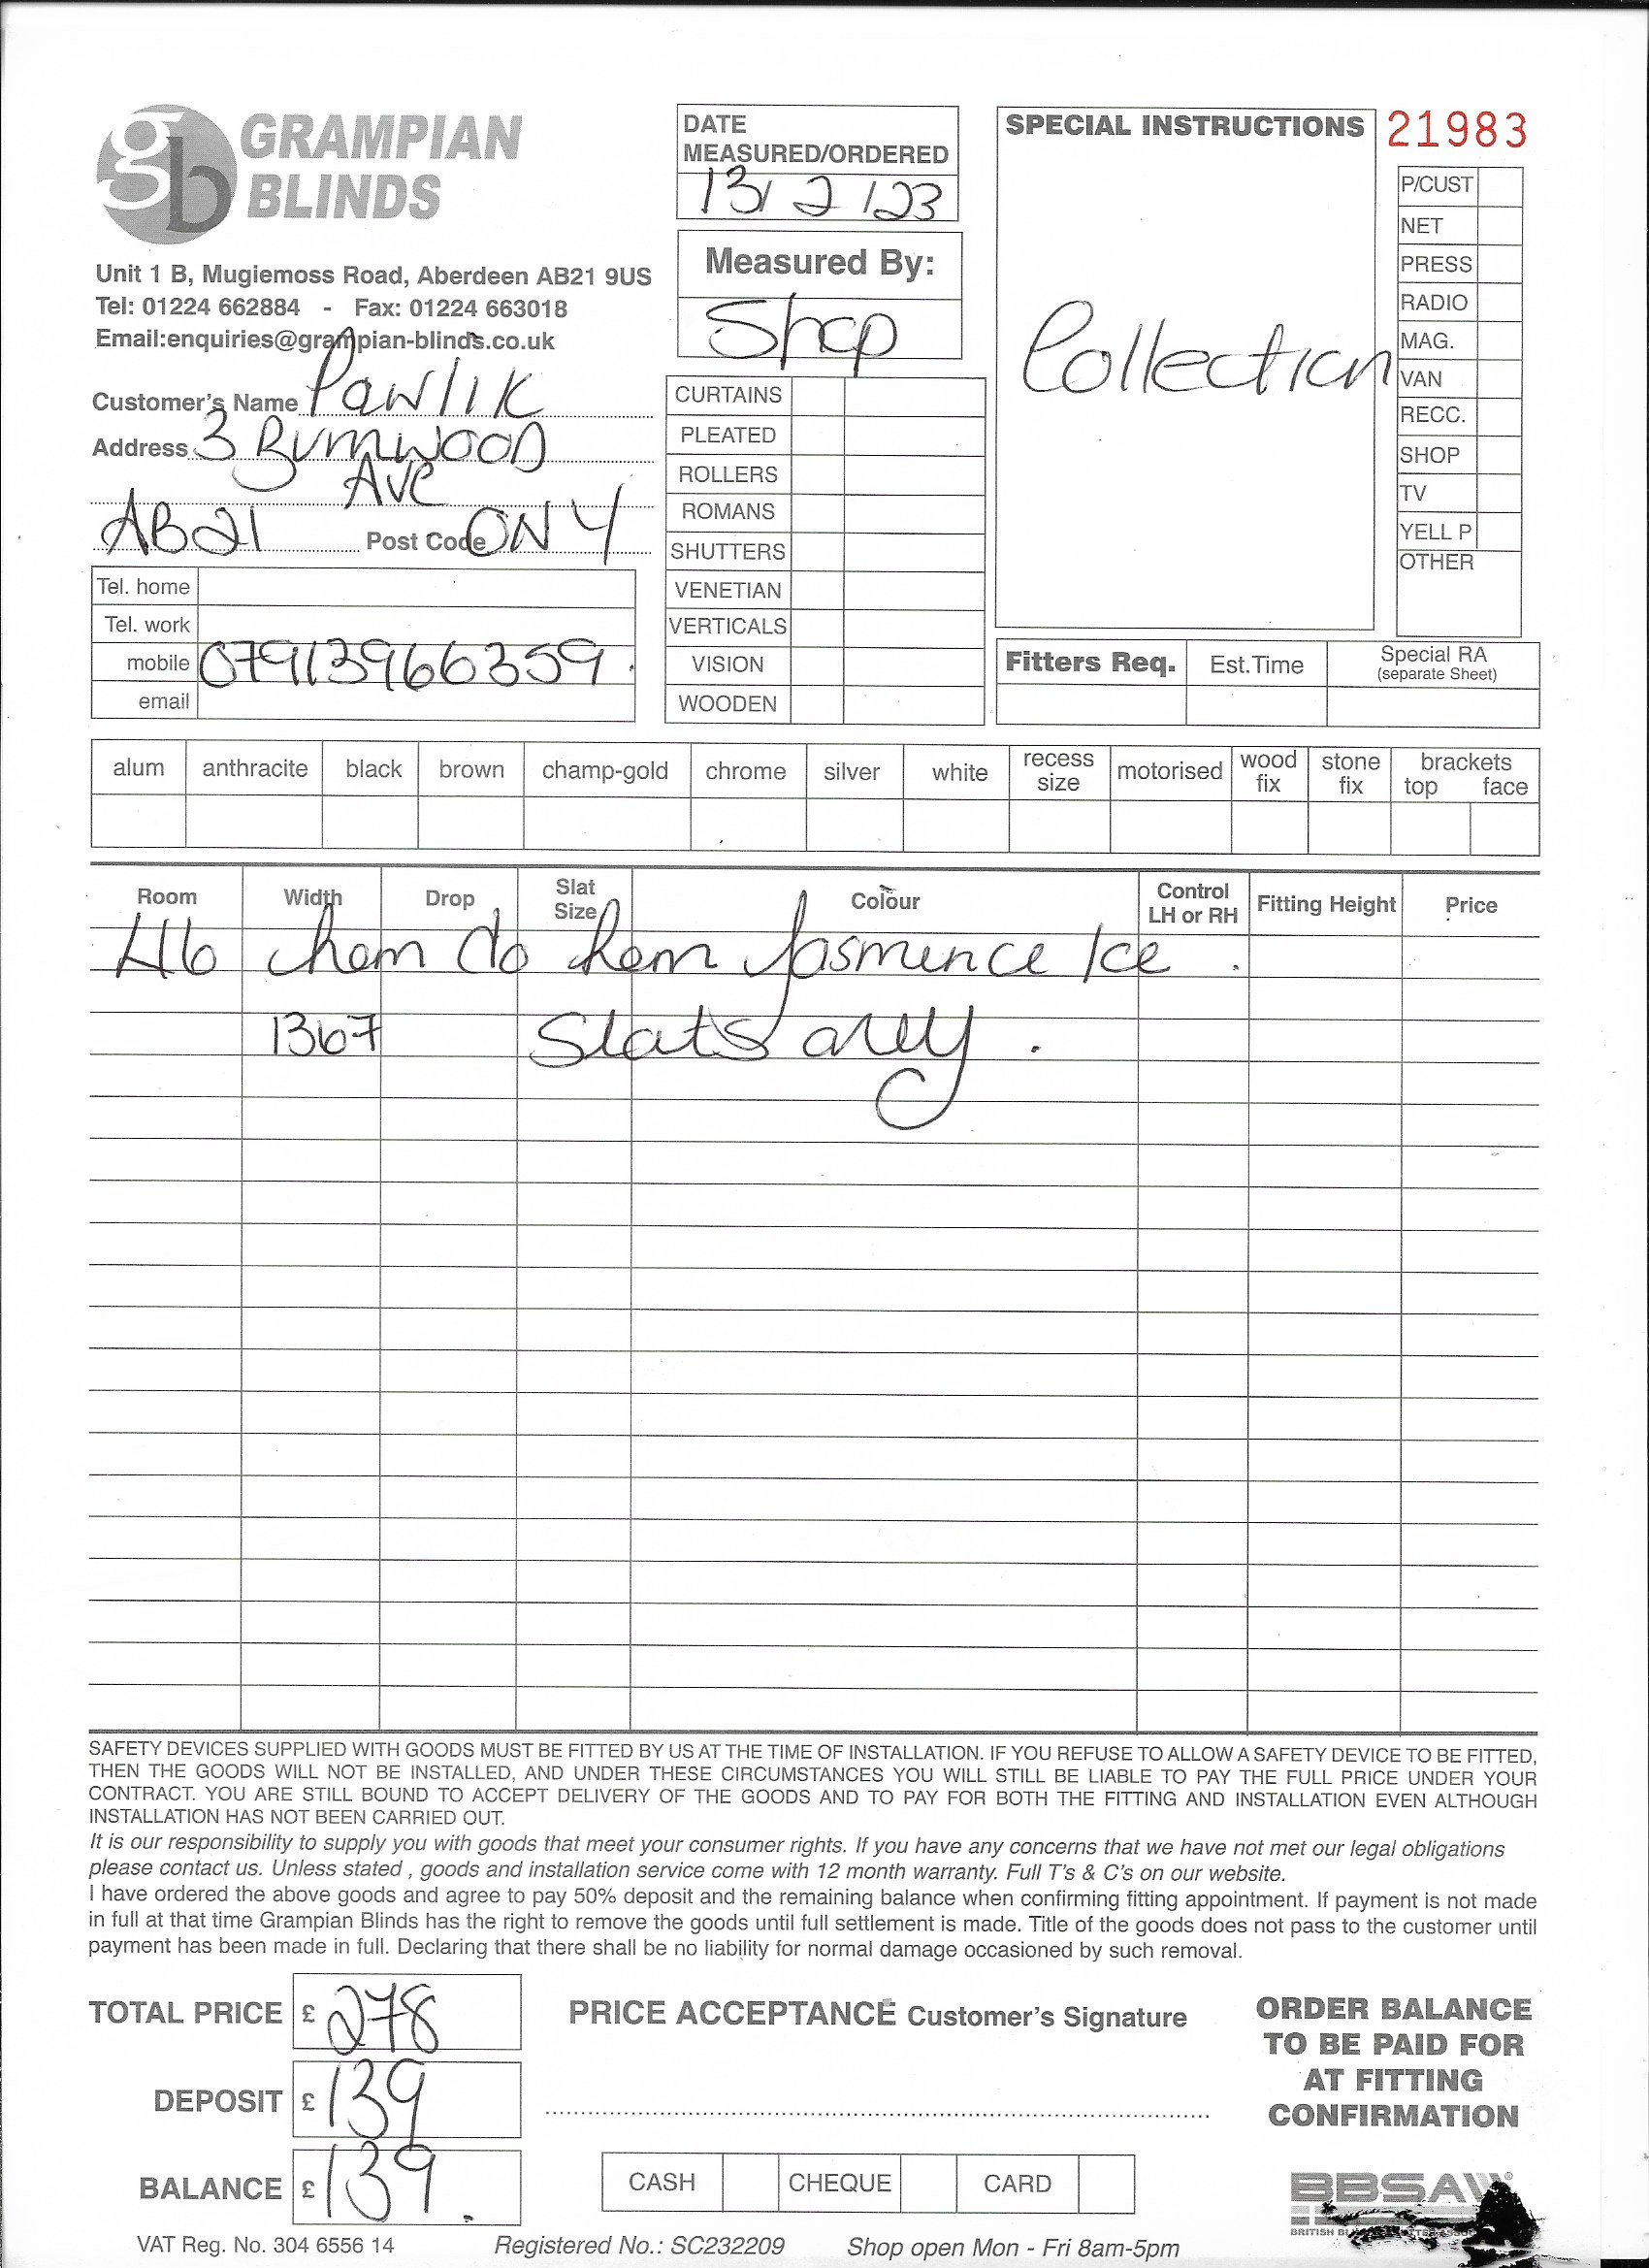 gb GRAMPIAN
BLINDS
Unit 1 B, Mugiemoss Road, Aberdeen AB21 9US
Tel: 01224 662884 - Fax: 01224 663018
Email:enquiries@grampian-blinds.co.uk
Customer's Name Pawlik
Address 3 Burnwood
Ave
AB21 Post Code 0NY
Tel. home
Tel. work
mobile 07913966359.
email
DATE
MEASURED/ORDERED
13/2/23
Measured By:
Shop
CURTAINS
PLEATED
ROLLERS
ROMANS
SHUTTERS
VENETIAN
VERTICALS
VISION
WOODEN
SPECIAL INSTRUCTIONS
Collection
21983
P/CUST
NET
PRESS
RADIO
MAG.
VAN
RECC.
SHOP
TV
YELL P
OTHER
Fitters Req. Est.Time Special RA
(separate Sheet)
alum anthracite black brown champ-gold chrome silver white recess size motorised wood fix stone fix brackets top face
Room Width Drop Slat Size Colour Control LH or RH Fitting Height Price
46 hem to hem Jasmence Ice.
1367 Slats only.
SAFETY DEVICES SUPPLIED WITH GOODS MUST BE FITTED BY US AT THE TIME OF INSTALLATION. IF YOU REFUSE TO ALLOW A SAFETY DEVICE TO BE FITTED,
THEN THE GOODS WILL NOT BE INSTALLED, AND UNDER THESE CIRCUMSTANCES YOU WILL STILL BE LIABLE TO PAY THE FULL PRICE UNDER YOUR
CONTRACT. YOU ARE STILL BOUND TO ACCEPT DELIVERY OF THE GOODS AND TO PAY FOR BOTH THE FITTING AND INSTALLATION EVEN ALTHOUGH
INSTALLATION HAS NOT BEEN CARRIED OUT.
It is our responsibility to supply you with goods that meet your consumer rights. If you have any concerns that we have not met our legal obligations
please contact us. Unless stated , goods and installation service come with 12 month warranty. Full T's & C's on our website.
I have ordered the above goods and agree to pay 50% deposit and the remaining balance when confirming fitting appointment. If payment is not made
in full at that time Grampian Blinds has the right to remove the goods until full settlement is made. Title of the goods does not pass to the customer until
payment has been made in full. Declaring that there shall be no liability for normal damage occasioned by such removal.
TOTAL PRICE £ 278
DEPOSIT £ 139
BALANCE £ 139.
PRICE ACCEPTANCE Customer's Signature
CASH CHEQUE CARD
ORDER BALANCE
TO BE PAID FOR
AT FITTING
CONFIRMATION
BBSA
BRITISH
VAT Reg. No. 304 6556 14 Registered No.: SC232209 Shop open Mon - Fri 8am-5pm